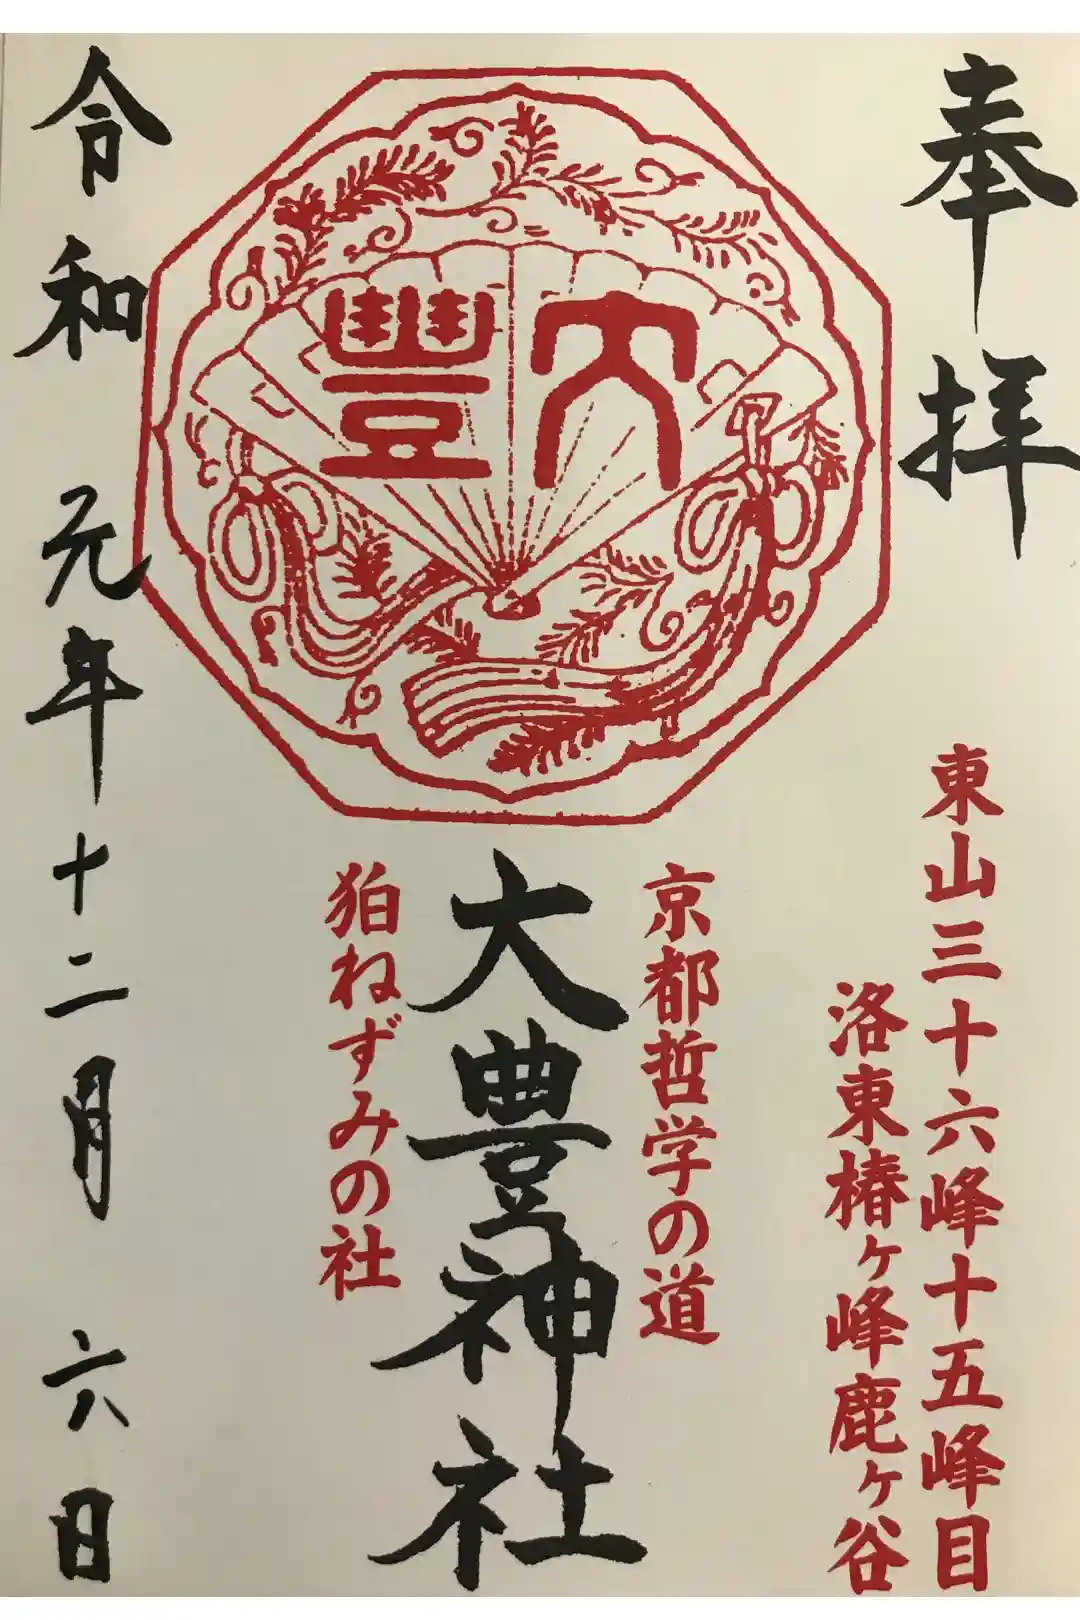 奉拝
東山三十六峰十五峰目
洛東椿ヶ峰鹿ヶ谷
京都哲学の道
大豐
大豊神社
狛ねずみの社
令和元年十二月六日